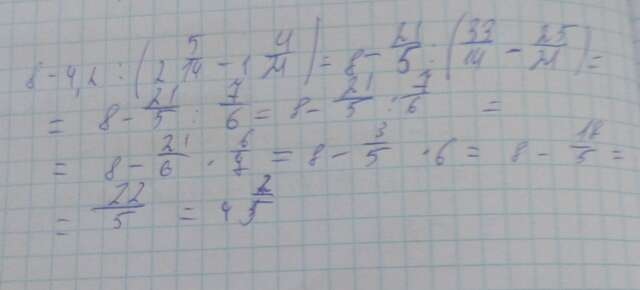 8 - 4,2 : (2 5/14 - 1 4/21) = 8 - 21/5 : (33/14 - 25/21) =
= 8 - 21/5 : 7/6 = 8 - 21/5 : 7/6 =
= 8 - 21/6 · 6/7 = 8 - 3/5 · 6 = 8 - 18/5 =
= 22/5 = 4 2/5